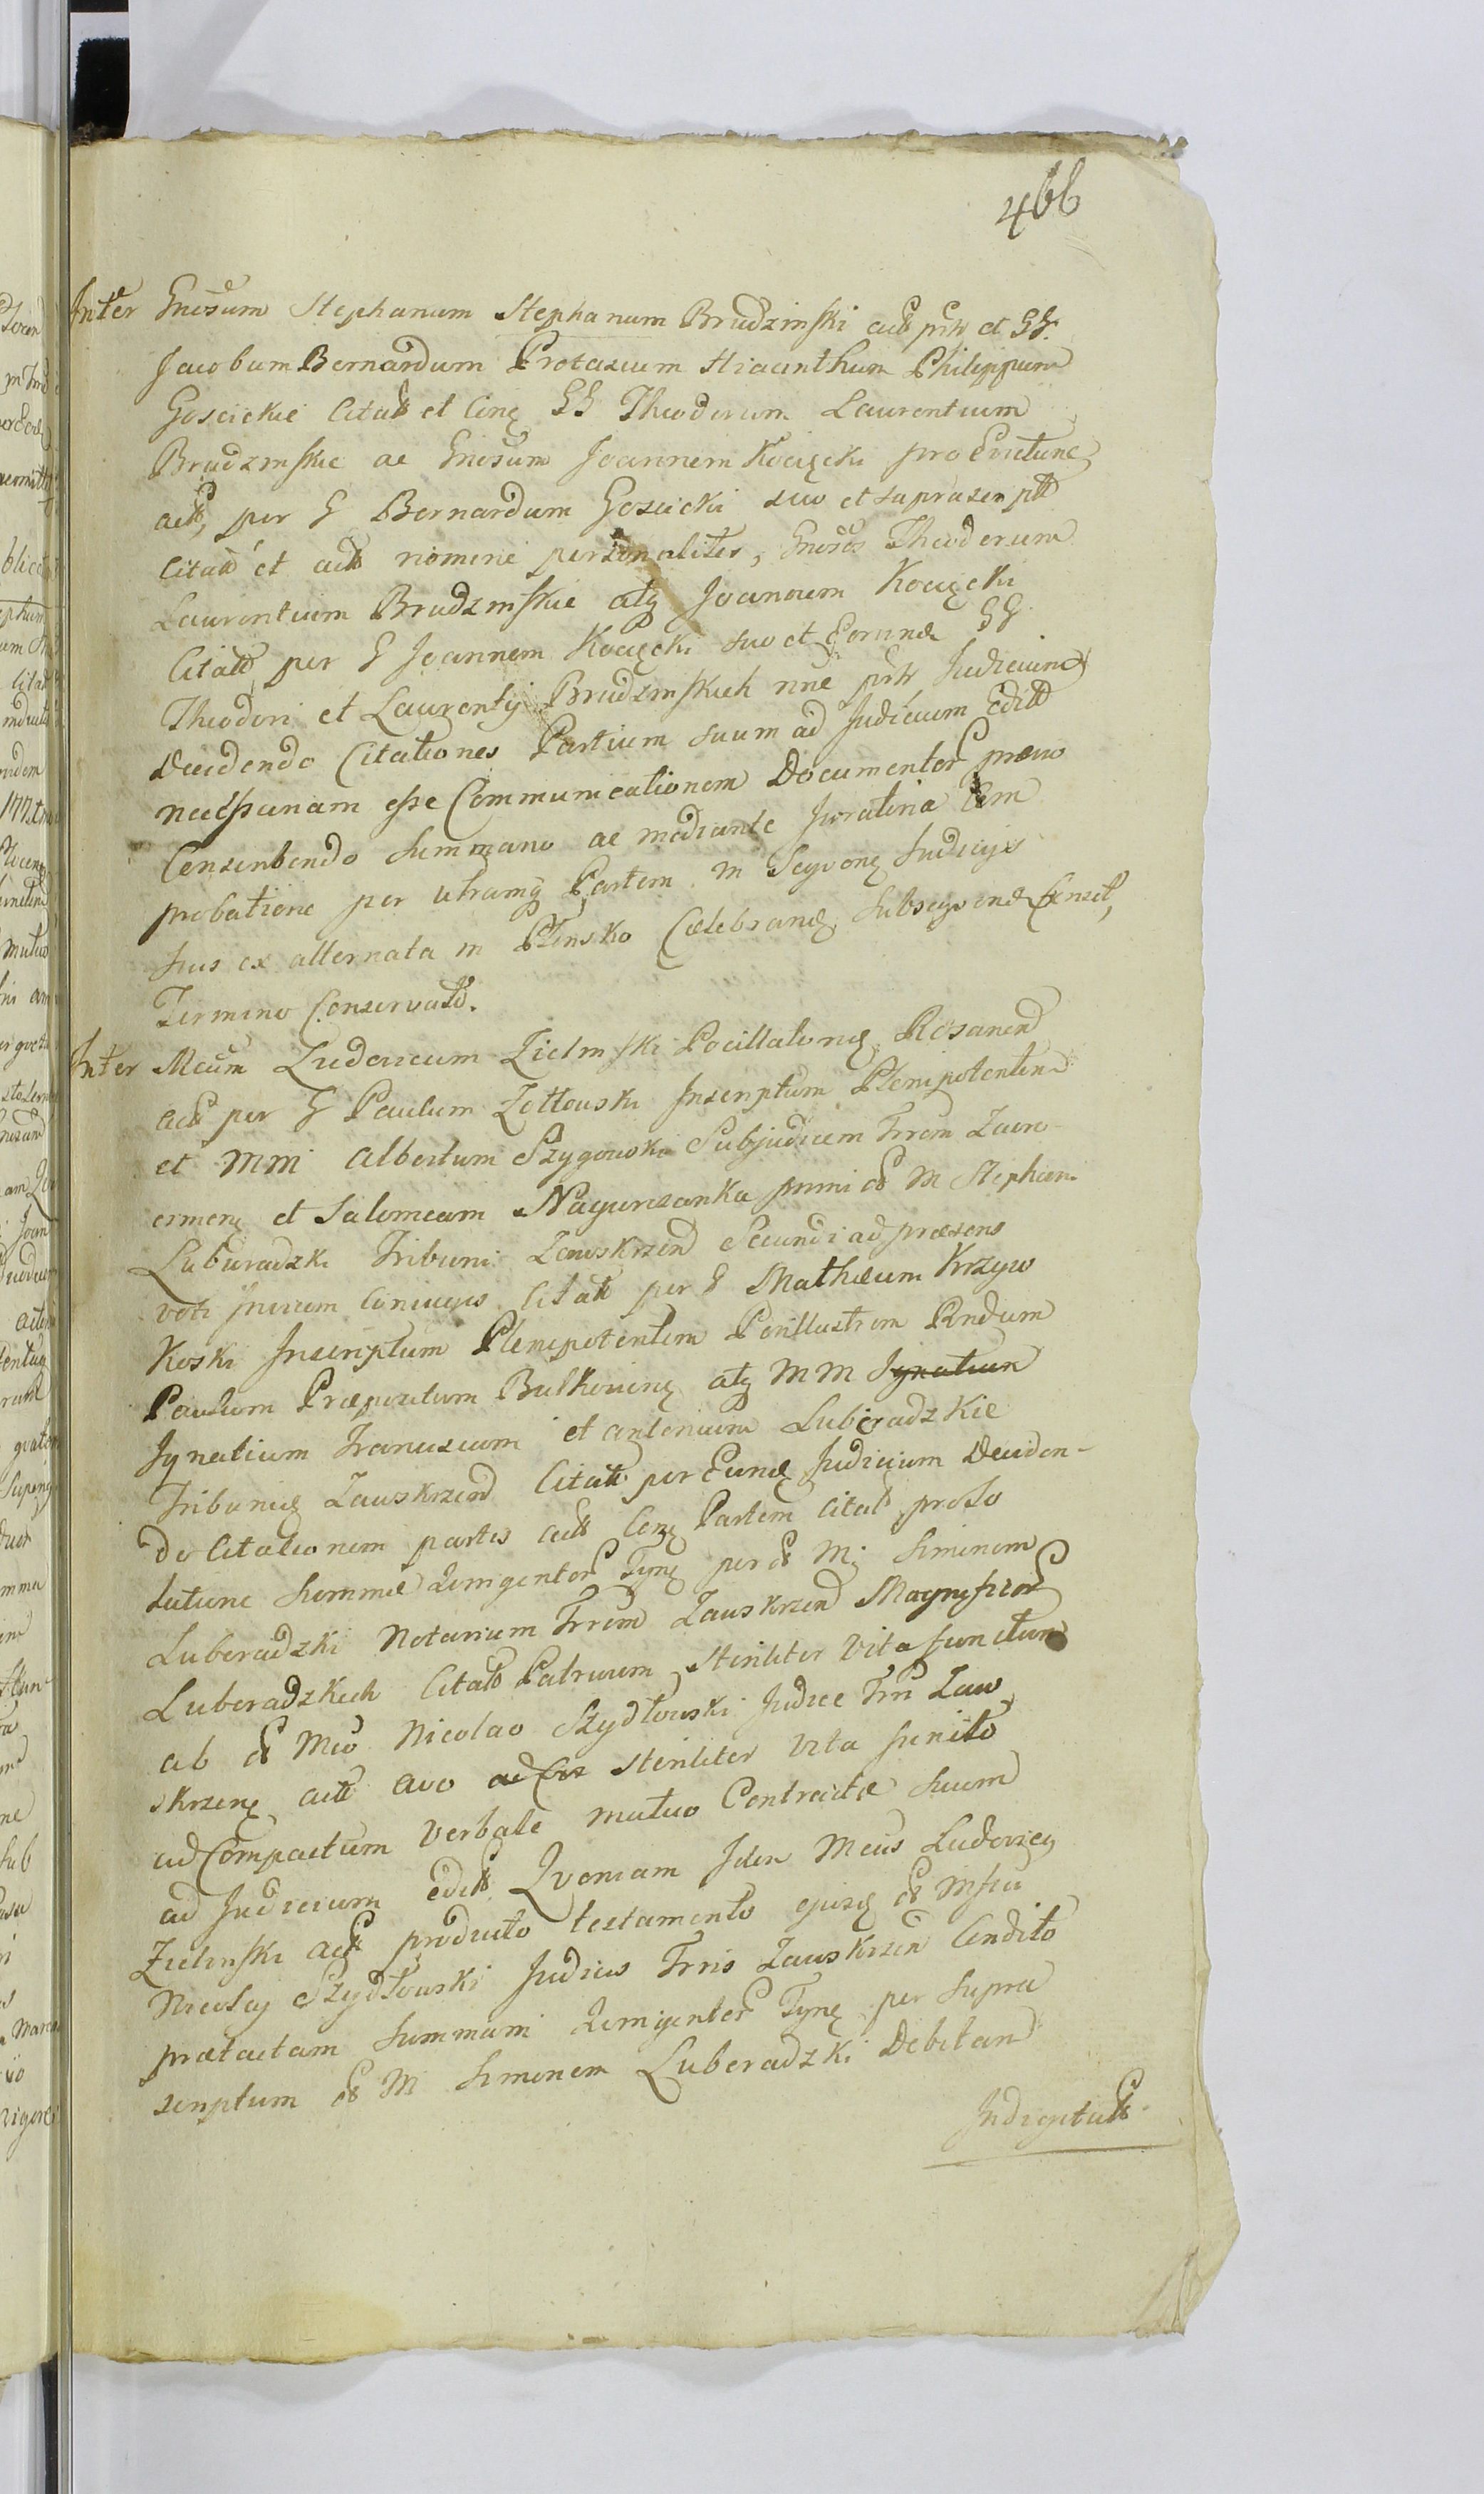 466
Inter Gnosum Stephanum Stephanum Brudzinski act pntr et GG.
Jacobum Bernardum Protasium Hiacinthum Philippum
Goscickie Citatt et Cinq GG Theodorum Laurentium
Brudzinskie ac Gnosum Joannem Kocięcki pro Evictune
actt, per G Bernardum Goscicki suo et suprascriptt
Citatt et actt nomine personaliter, Gnosos Theodorum
Laurentium Brudzinskie atq Joannem Kocięcki
Citatt per G Joannem Kocięcki suo et Eorund GG
Theodori et Laurentij Brudzinskich nne pntr Judicium
Decidendo Citationes Partium suum ad Judicium Editt
necessariam esse Communicationem Documentor prævio
Conscribendo Summario ac mediante Juratoria Em
probatione per utramq Partem in Seqvonq Judicijs
hus ex alternata in Plonsko Celebrand, Subseqvend Censet,
Termino Conservato.
Inter Mcum Ludovicum Zielinski Pocillatorid Rosanen
act per G Paulum Zottowski Inscriptum Plenipotenten
et MM Albertum Szygowski Subjudicem Trrem Zawo
ermenq et Salomeam Nagurczanka primi ol M Stephani
Luberadzki Tribuni Zawskrzen Secundi ad præsens
voti invicem Coniuges Citatt per G Mathæum Krzyw
koski Inscriptum Plenipotentem Perillustrem Rndum
Paulum Præpositum Bulkovienq atq MM Ignatium
Ignatium Franciscum et Antonium Luberadzkie
Tribunid Zawskrzen Citatt per Eund Judicium Deciden-
do Citationem partis actt Cenq Partem Citatt pro So
lutione Summæ Quingentor Tynq per ol M. Simonem
Luberadzki Notarium Trrem Zawskrzen Magnificor
Luberadzkich Citatt Patruum Steriliter Vita functum
ab ol Mco Nicolao Szydłowski Judice Trri Zaw
skrzenq actt Avo ac Cos Steriliter Vita functo
ad Compactum Verbale mutuo Contractæ Suum
ad Judicium editt, Qvoniam Idem Mcus Ludovicq
Zielinski actt producto testamento ejusq ol Mfici
Nicolaj Szydłowski Judicis Trris Zawskrzen Condito
prætactam Summam Quingentor Tynq per Supra
scriptum ol M Simonem Luberadzki Debitam
Indigitatt